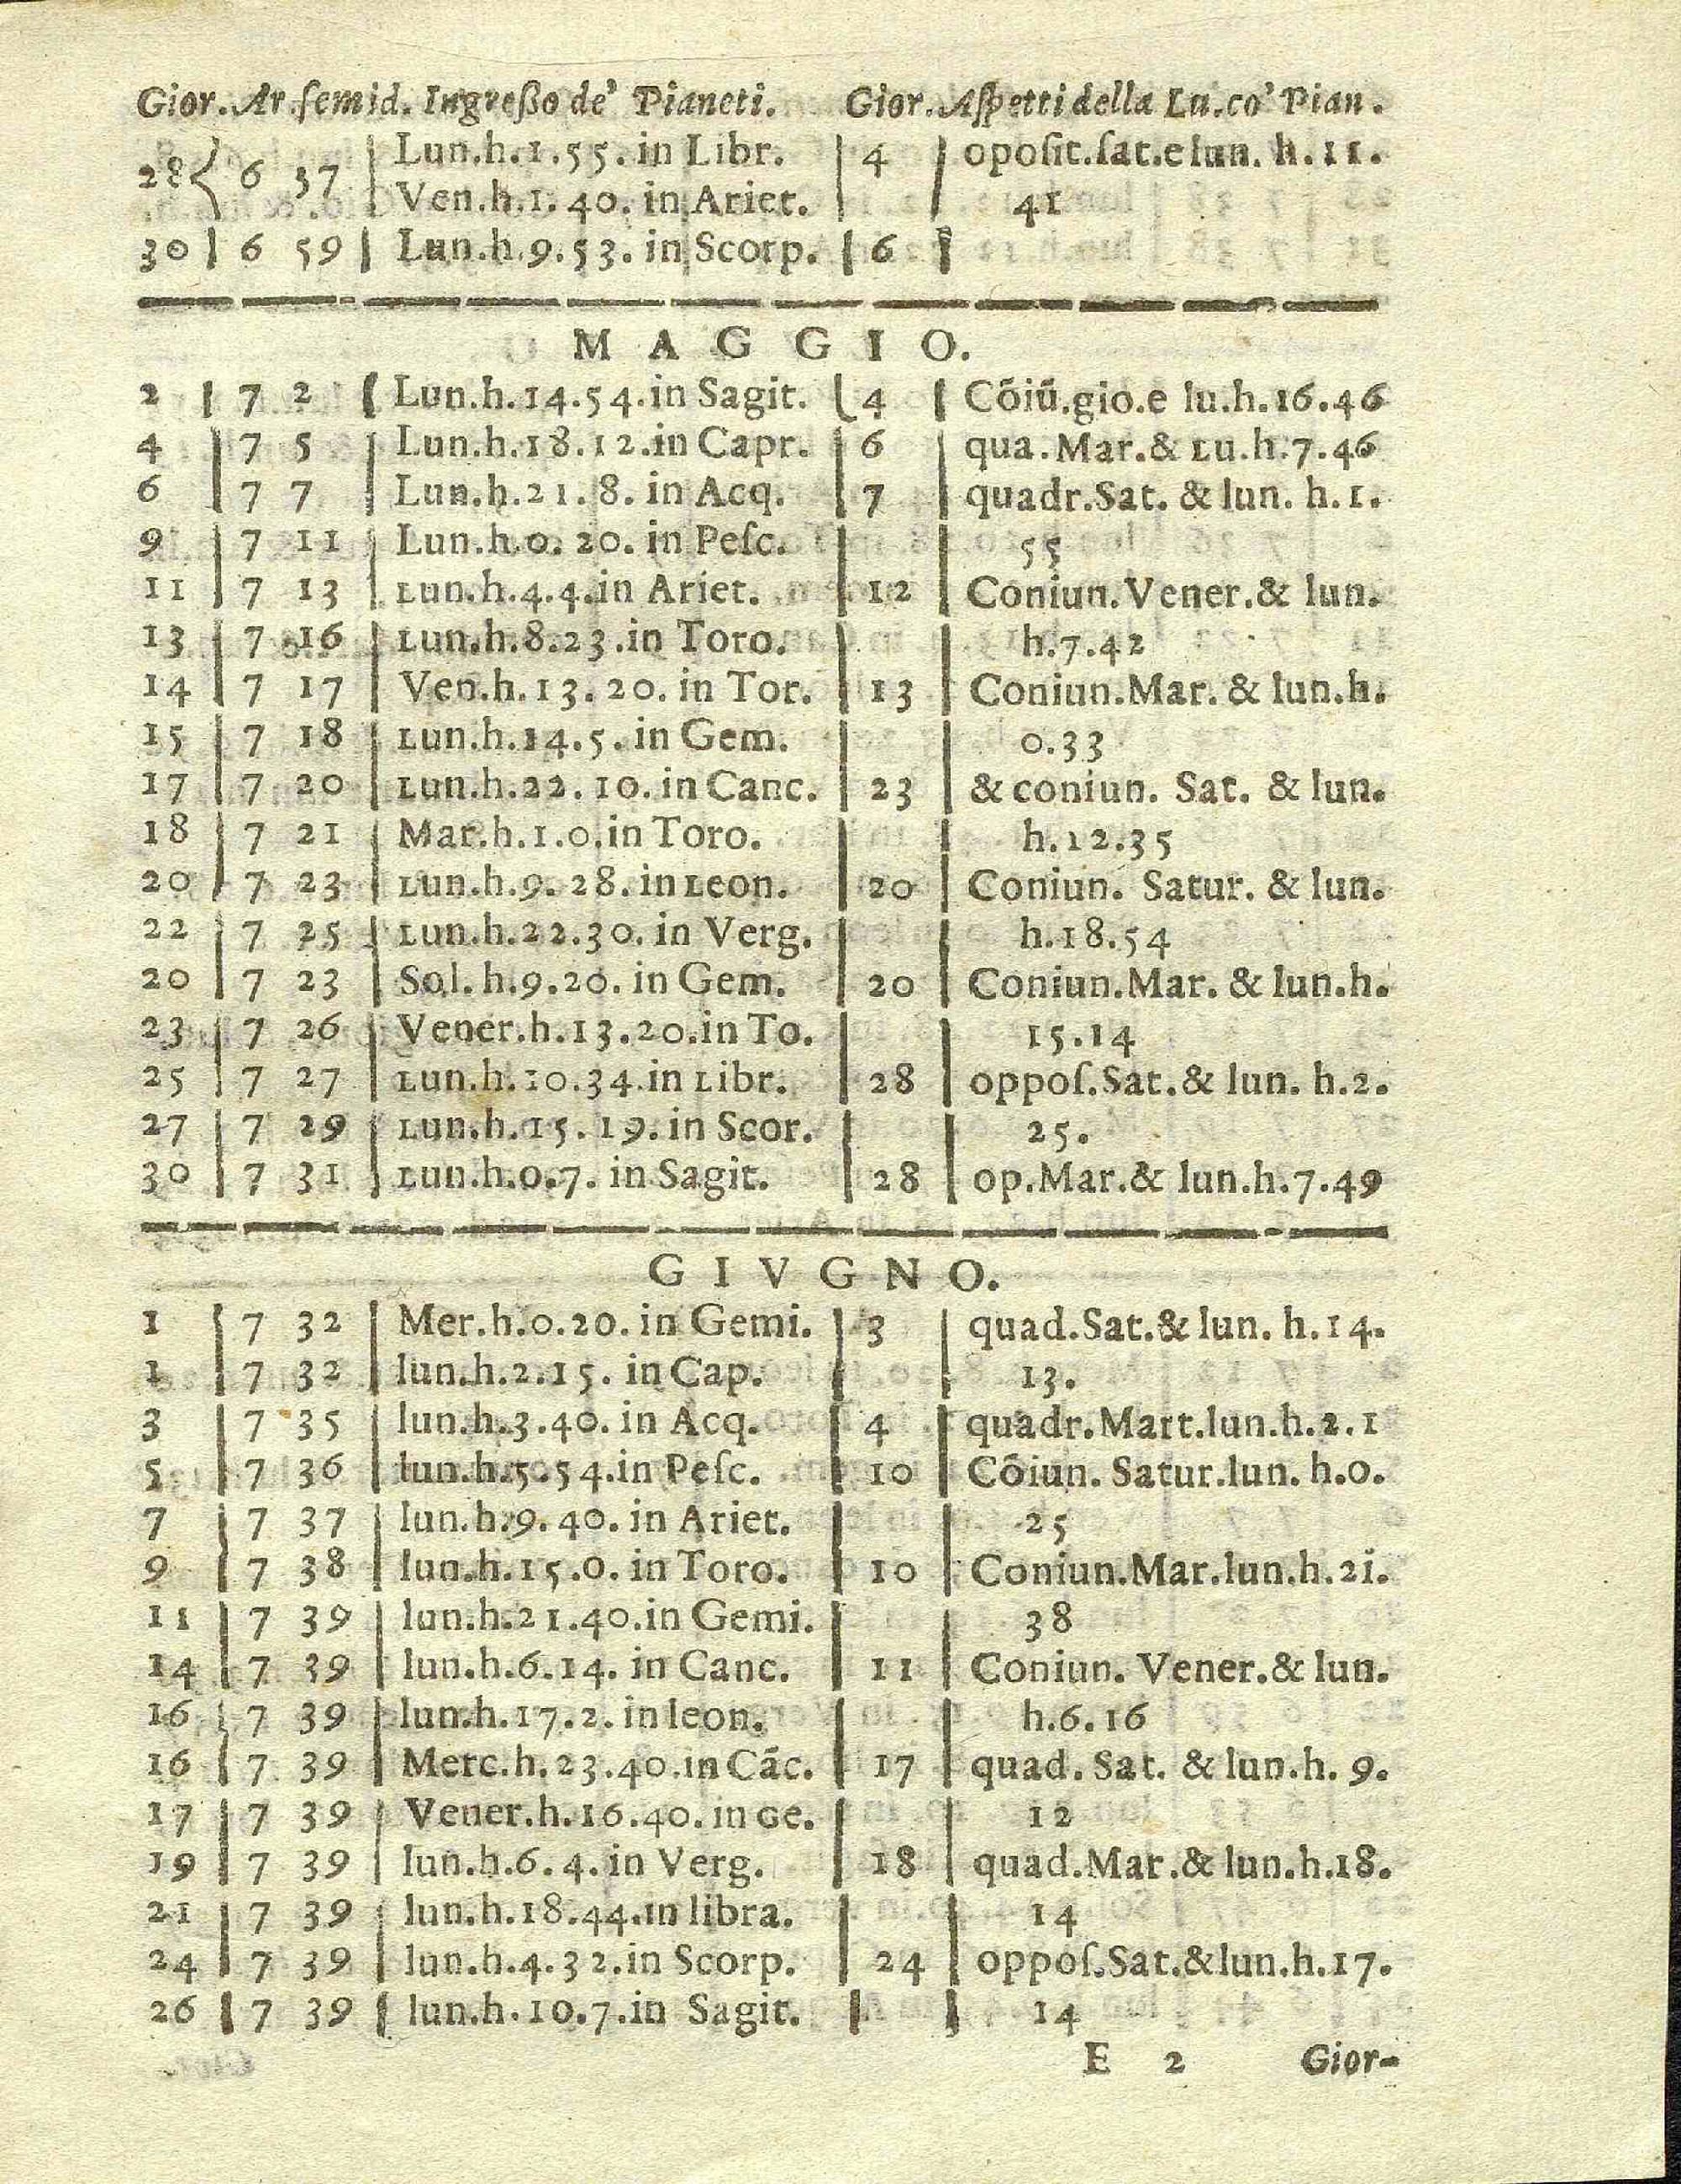 Gior. Ar. semid. Ingreßo de' Pianeti. Gior. Aſpetti della Lu. co' Pian.
28 { 6 37 | Lun.h.1.55. in Libr. | 4 | opoſit.ſat.e lun. h.11.
Ven.h.1.40. in Ariet. | | 41
30 | 6 59 | Lun.h.9.53. in Scorp. | 6 |
MAGGIO.
2 | 7 2 | Lun.h.14.54.in Sagit. | 4 | Cõiũ.gio.e lu.h.16.46
4 | 7 5 | Lun.h.18.12.in Capr. | 6 | qua.Mar.& Lu.h.7.46
6 | 7 7 | Lun.h.21.8. in Acq. | 7 | quadr.Sat. & lun. h.1.
9 | 7 11 | Lun.h.0.20. in Peſc. | | 55
11 | 7 13 | Lun.h.4.4.in Ariet. | 12 | Coniun.Vener.& lun.
13 | 7 16 | Lun.h.8.23.in Toro. | | h.7.42
14 | 7 17 | Ven.h.13.20. in Tor. | 13 | Coniun.Mar. & lun.h.
15 | 7 18 | Lun.h.14.5. in Gem. | | 0.33
17 | 7 20 | Lun.h.22.10. in Canc. | 23 | & coniun. Sat. & lun.
18 | 7 21 | Mar.h.1.0.in Toro. | | h.12.35
20 | 7 23 | Lun.h.9.28. in Leon. | 20 | Coniun. Satur. & lun.
22 | 7 25 | Lun.h.22.30. in Verg. | | h.18.54
20 | 7 23 | Sol. h.9.20. in Gem. | 20 | Coniun.Mar. & lun.h.
23 | 7 26 | Vener.h.13.20.in To. | | 15.14
25 | 7 27 | Lun.h.10.34.in Libr. | 28 | oppoſ.Sat.& lun. h.2.
27 | 7 29 | Lun.h.15.19. in Scor. | | 25.
30 | 7 31 | Lun.h.0.7. in Sagit. | 28 | op.Mar.& lun.h.7.49
GIVGNO.
1 | 7 32 | Mer.h.0.20. in Gemi. | 3 | quad.Sat.& lun. h.14.
1 | 7 32 | lun.h.2.15. in Cap. | | 13.
3 | 7 35 | lun.h.3.40. in Acq. | 4 | quadr.Mart.lun.h.2.1
5 | 7 36 | lun.h.5.54.in Peſc. | 10 | Cõiun. Satur.lun. h.0.
7 | 7 37 | lun.h.9.40. in Ariet. | | 25
9 | 7 38 | lun.h.15.0. in Toro. | 10 | Coniun.Mar.lun.h.2i.
11 | 7 39 | lun.h.21.40.in Gemi. | | 38
14 | 7 39 | lun.h.6.14. in Canc. | 11 | Coniun. Vener.& lun.
16 | 7 39 | lun.h.17.2. in leon. | | h.6.16
16 | 7 39 | Merc.h.23.40.in Cãc. | 17 | quad. Sat. & lun.h. 9.
17 | 7 39 | Vener.h.16.40. in Ge. | | 12
19 | 7 39 | lun.h.6.4.in Verg. | 18 | quad.Mar.& lun.h.18.
21 | 7 39 | lun.h.18.44.in libra. | | 14
24 | 7 39 | lun.h.4.32.in Scorp. | 24 | oppoſ.Sat.&lun.h.17.
26 | 7 39 | lun.h.10.7.in Sagit. | | 14
E 2 Gior-